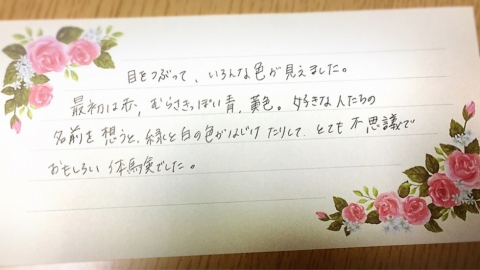 目をつぶって、いろんな色が見えました。
最初は赤、むらさきっぽい青、黄色。好きな人たちの
名前を想うと、緑と白の色がはじけたりして、とても不思議で
おもしろい体験でした。